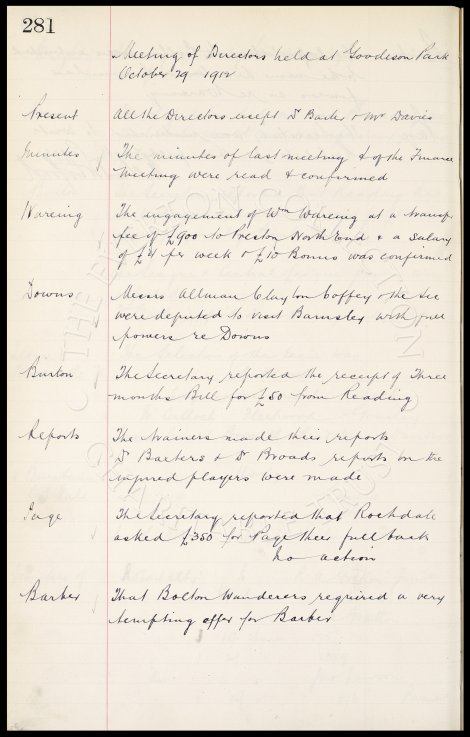 281
Meeting of Directors held at Goodison Park
October 29 1912
Present All the Directors except Dr Baxter & Mr Davies
Minutes The minutes of last meeting & of the Finance
Meeting were read & confirmed
Wareing The engagement of Wm Wareing at a transfer
fee of £900 to Preston North End & a salary
of £4 per week & £10 Bonus was confirmed
Downs Messrs Allman Clayton Coffey & the Sec
were deputed to visit Barnsley with full
powers re Downs
Burton The Secretary reported the receipt of Three
months Bill for £50 from Reading
Reports The trainers made their reports
Dr Baxters & Dr Broads reports on the
injured players were made
Page The Secretary reported that Rochdale
asked £350 for Page their full back
no action
Barber That Bolton Wanderers required a very
tempting offer for Barber